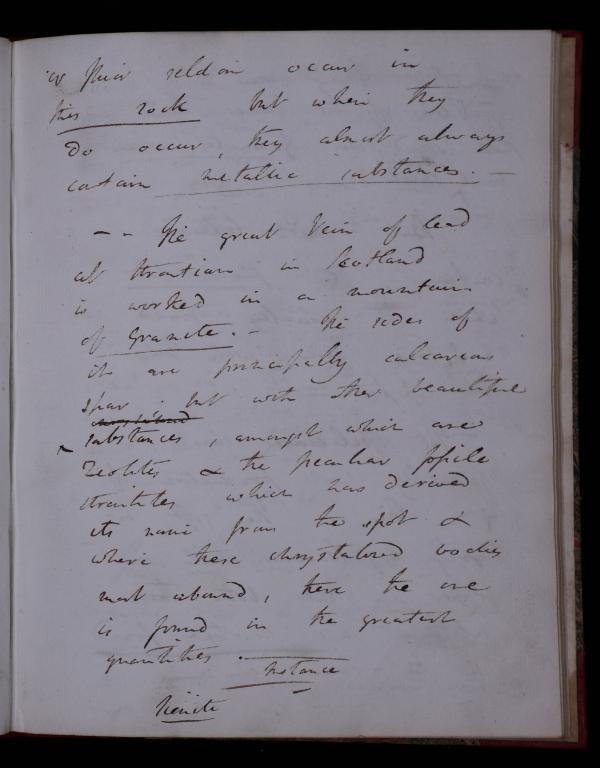 or Veins seldom occur in
this rock but when they
do occur, they almost always
contain metallic substances. —
— - The great Vein of lead
at Strontian in Scotland
is worked in a mountain
of Granite. — The sides of
it are principally calcareous
spar. but with other beautiful
substances, amongst which are
Zeolites & the peculiar fossile
strontites which has derived
its name from the spot &
where these chrystalized bodies
most abound, there the ore
is found in the greatest
quantities. —
Instance
Sienite